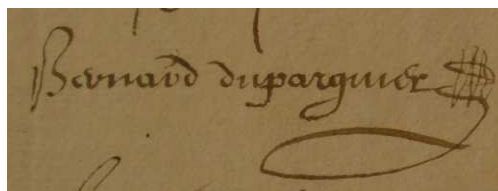 Bernard duparquier